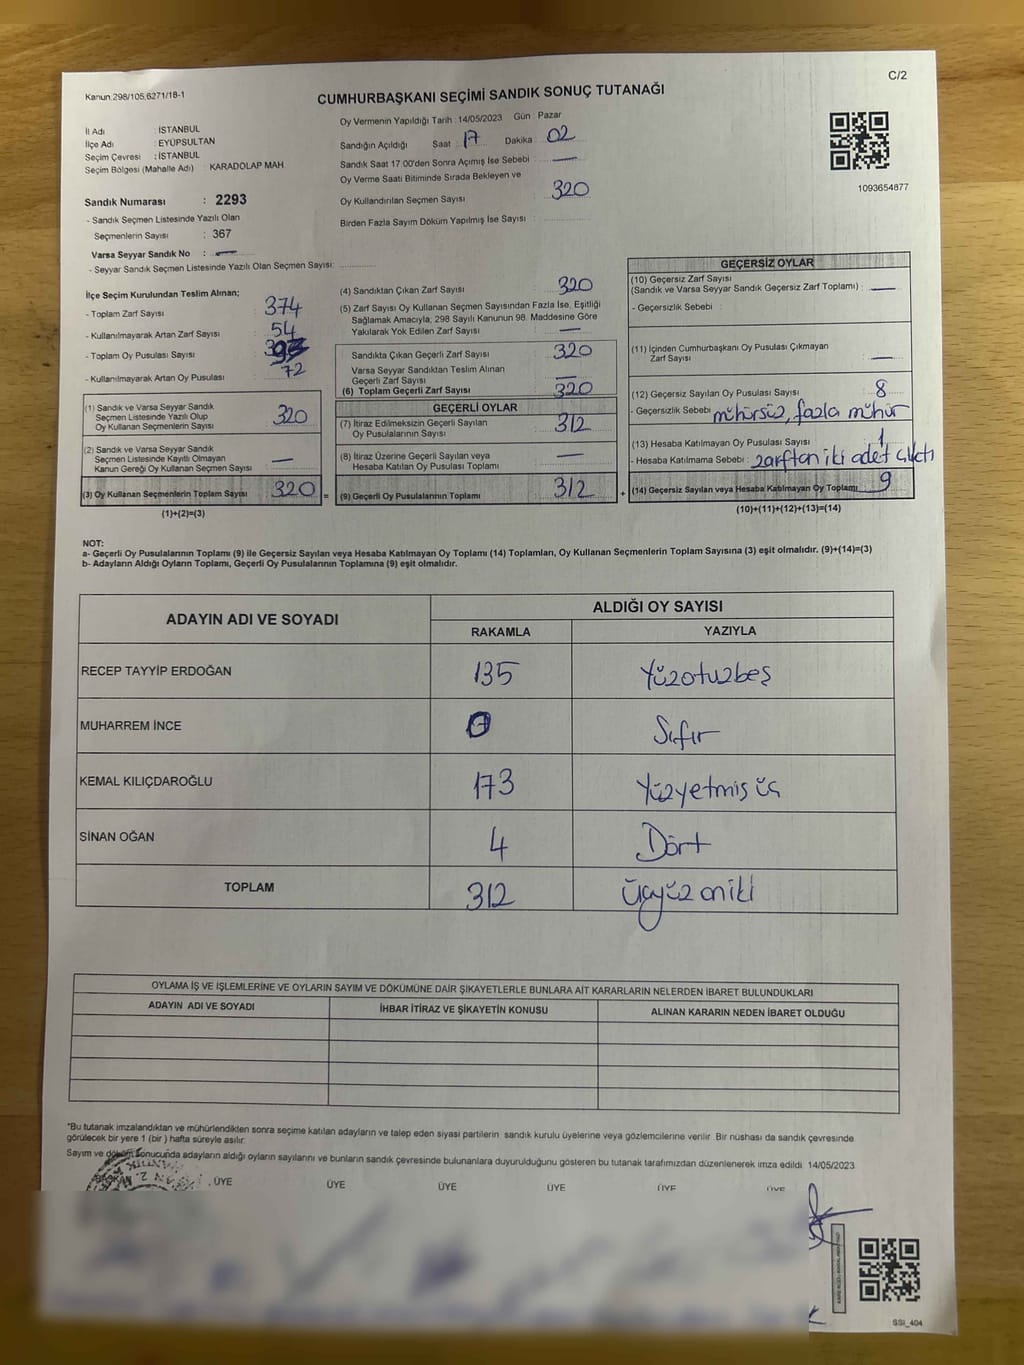 C/2
Kanun 298/105,6271/18-1
CUMHURBAŞKANI SEÇİMİ SANDIK SONUÇ TUTANAĞI
İl Adı : İSTANBUL
İlçe Adı : EYÜPSULTAN
Seçim Çevresi : İSTANBUL
Seçim Bölgesi (Mahalle Adı) : KARADOLAP MAH
Sandık Numarası : 2293
- Sandık Seçmen Listesinde Yazılı Olan
Seçmenlerin Sayısı : 367
Varsa Seyyar Sandık No : —
- Seyyar Sandık Seçmen Listesinde Yazılı Olan Seçmen Sayısı:
Oy Vermenin Yapıldığı Tarih :14/05/2023 Gün : Pazar
Sandığın Açıldığı Saat : 17 Dakika : 02
Sandık Saat 17:00'den Sonra Açımış İse Sebebi : —
Oy Verme Saati Bitiminde Sırada Bekleyen ve
Oy Kullandırılan Seçmen Sayısı : 320
Birden Fazla Sayım Döküm Yapılmış İse Sayısı :
1093654877
İlçe Seçim Kurulundan Teslim Alınan;
- Toplam Zarf Sayısı : 374
- Kullanılmayarak Artan Zarf Sayısı : 54
- Toplam Oy Pusulası Sayısı :
- Kullanılmayarak Artan Oy Pusulası : 72
(1) Sandık ve Varsa Seyyar Sandık
Seçmen Listesinde Yazılı Olup
Oy Kullanan Seçmenlerin Sayısı : 320
(2) Sandık ve Varsa Seyyar Sandık
Seçmen Listesinde Kayıtlı Olmayan
Kanun Gereği Oy Kullanan Seçmen Sayısı : —
(3) Oy Kullanan Seçmenlerin Toplam Sayısı : 320 =
(1)+(2)=(3)
(4) Sandıktan Çıkan Zarf Sayısı : 320
(5) Zarf Sayısı Oy Kullanan Seçmen Sayısından Fazla İse, Eşitliği
Sağlamak Amacıyla; 298 Sayılı Kanunun 98. Maddesine Göre
Yakılarak Yok Edilen Zarf Sayısı : —
Sandıkta Çıkan Geçerli Zarf Sayısı : 320
Varsa Seyyar Sandıktan Teslim Alınan
Geçerli Zarf Sayısı : —
(6) Toplam Geçerli Zarf Sayısı : 320
GEÇERLİ OYLAR
(7) İtiraz Edilmeksizin Geçerli Sayılan
Oy Pusulalarının Sayısı : 312
(8) İtiraz Üzerine Geçerli Sayılan veya
Hesaba Katılan Oy Pusulası Toplamı : —
(9) Geçerli Oy Pusulalarının Toplamı : 312 +
GEÇERSİZ OYLAR
(10) Geçersiz Zarf Sayısı
(Sandık ve Varsa Seyyar Sandık Geçersiz Zarf Toplamı) : —
- Geçersizlik Sebebi :
(11) İçinden Cumhurbaşkanı Oy Pusulası Çıkmayan
Zarf Sayısı : —
(12) Geçersiz Sayılan Oy Pusulası Sayısı : 8
- Geçersizlik Sebebi : mühürsüz, fazla mühür
(13) Hesaba Katılmayan Oy Pusulası Sayısı : 1
- Hesaba Katılmama Sebebi : zarftan iki adet çıktı
(14) Geçersiz Sayılan veya Hesaba Katılmayan Oy Toplamı : 9
(10)+(11)+(12)+(13)=(14)
NOT:
a- Geçerli Oy Pusulalarının Toplamı (9) ile Geçersiz Sayılan veya Hesaba Katılmayan Oy Toplamı (14) Toplamları, Oy Kullanan Seçmenlerin Toplam Sayısına (3) eşit olmalıdır. (9)+(14)=(3)
b- Adayların Aldığı Oyların Toplamı, Geçerli Oy Pusulalarının Toplamına (9) eşit olmalıdır.
ADAYIN ADI VE SOYADI ALDIĞI OY SAYISI
RAKAMLA YAZIYLA
RECEP TAYYİP ERDOĞAN 135 Yüzotuzbeş
MUHARREM İNCE 0 Sıfır
KEMAL KILIÇDAROĞLU 173 Yüzyetmiş üç
SİNAN OĞAN 4 Dört
TOPLAM 312 Üçyüz oniki
OYLAMA İŞ VE İŞLEMLERİNE VE OYLARIN SAYIM VE DÖKÜMÜNE DAİR ŞİKAYETLERLE BUNLARA AİT KARARLARIN NELERDEN İBARET BULUNDUKLARI
ADAYIN ADI VE SOYADI İHBAR İTİRAZ VE ŞİKAYETİN KONUSU ALINAN KARARIN NEDEN İBARET OLDUĞU
*Bu tutanak imzalandıktan ve mühürlendikten sonra seçime katılan adayların ve talep eden siyasi partilerin sandık kurulu üyelerine veya gözlemcilerine verilir. Bir nüshası da sandık çevresinde
görülecek bir yere 1 (bir) hafta süreyle asılır.
Sayım ve döküm sonucunda adayların aldığı oyların sayılarını ve bunların sandık çevresinde bulunanlara duyurulduğunu gösteren bu tutanak tarafımızdan düzenlenerek imza edildi. 14/05/2023
BAŞKAN ÜYE ÜYE ÜYE ÜYE ÜYE ÜYE
SSI_404